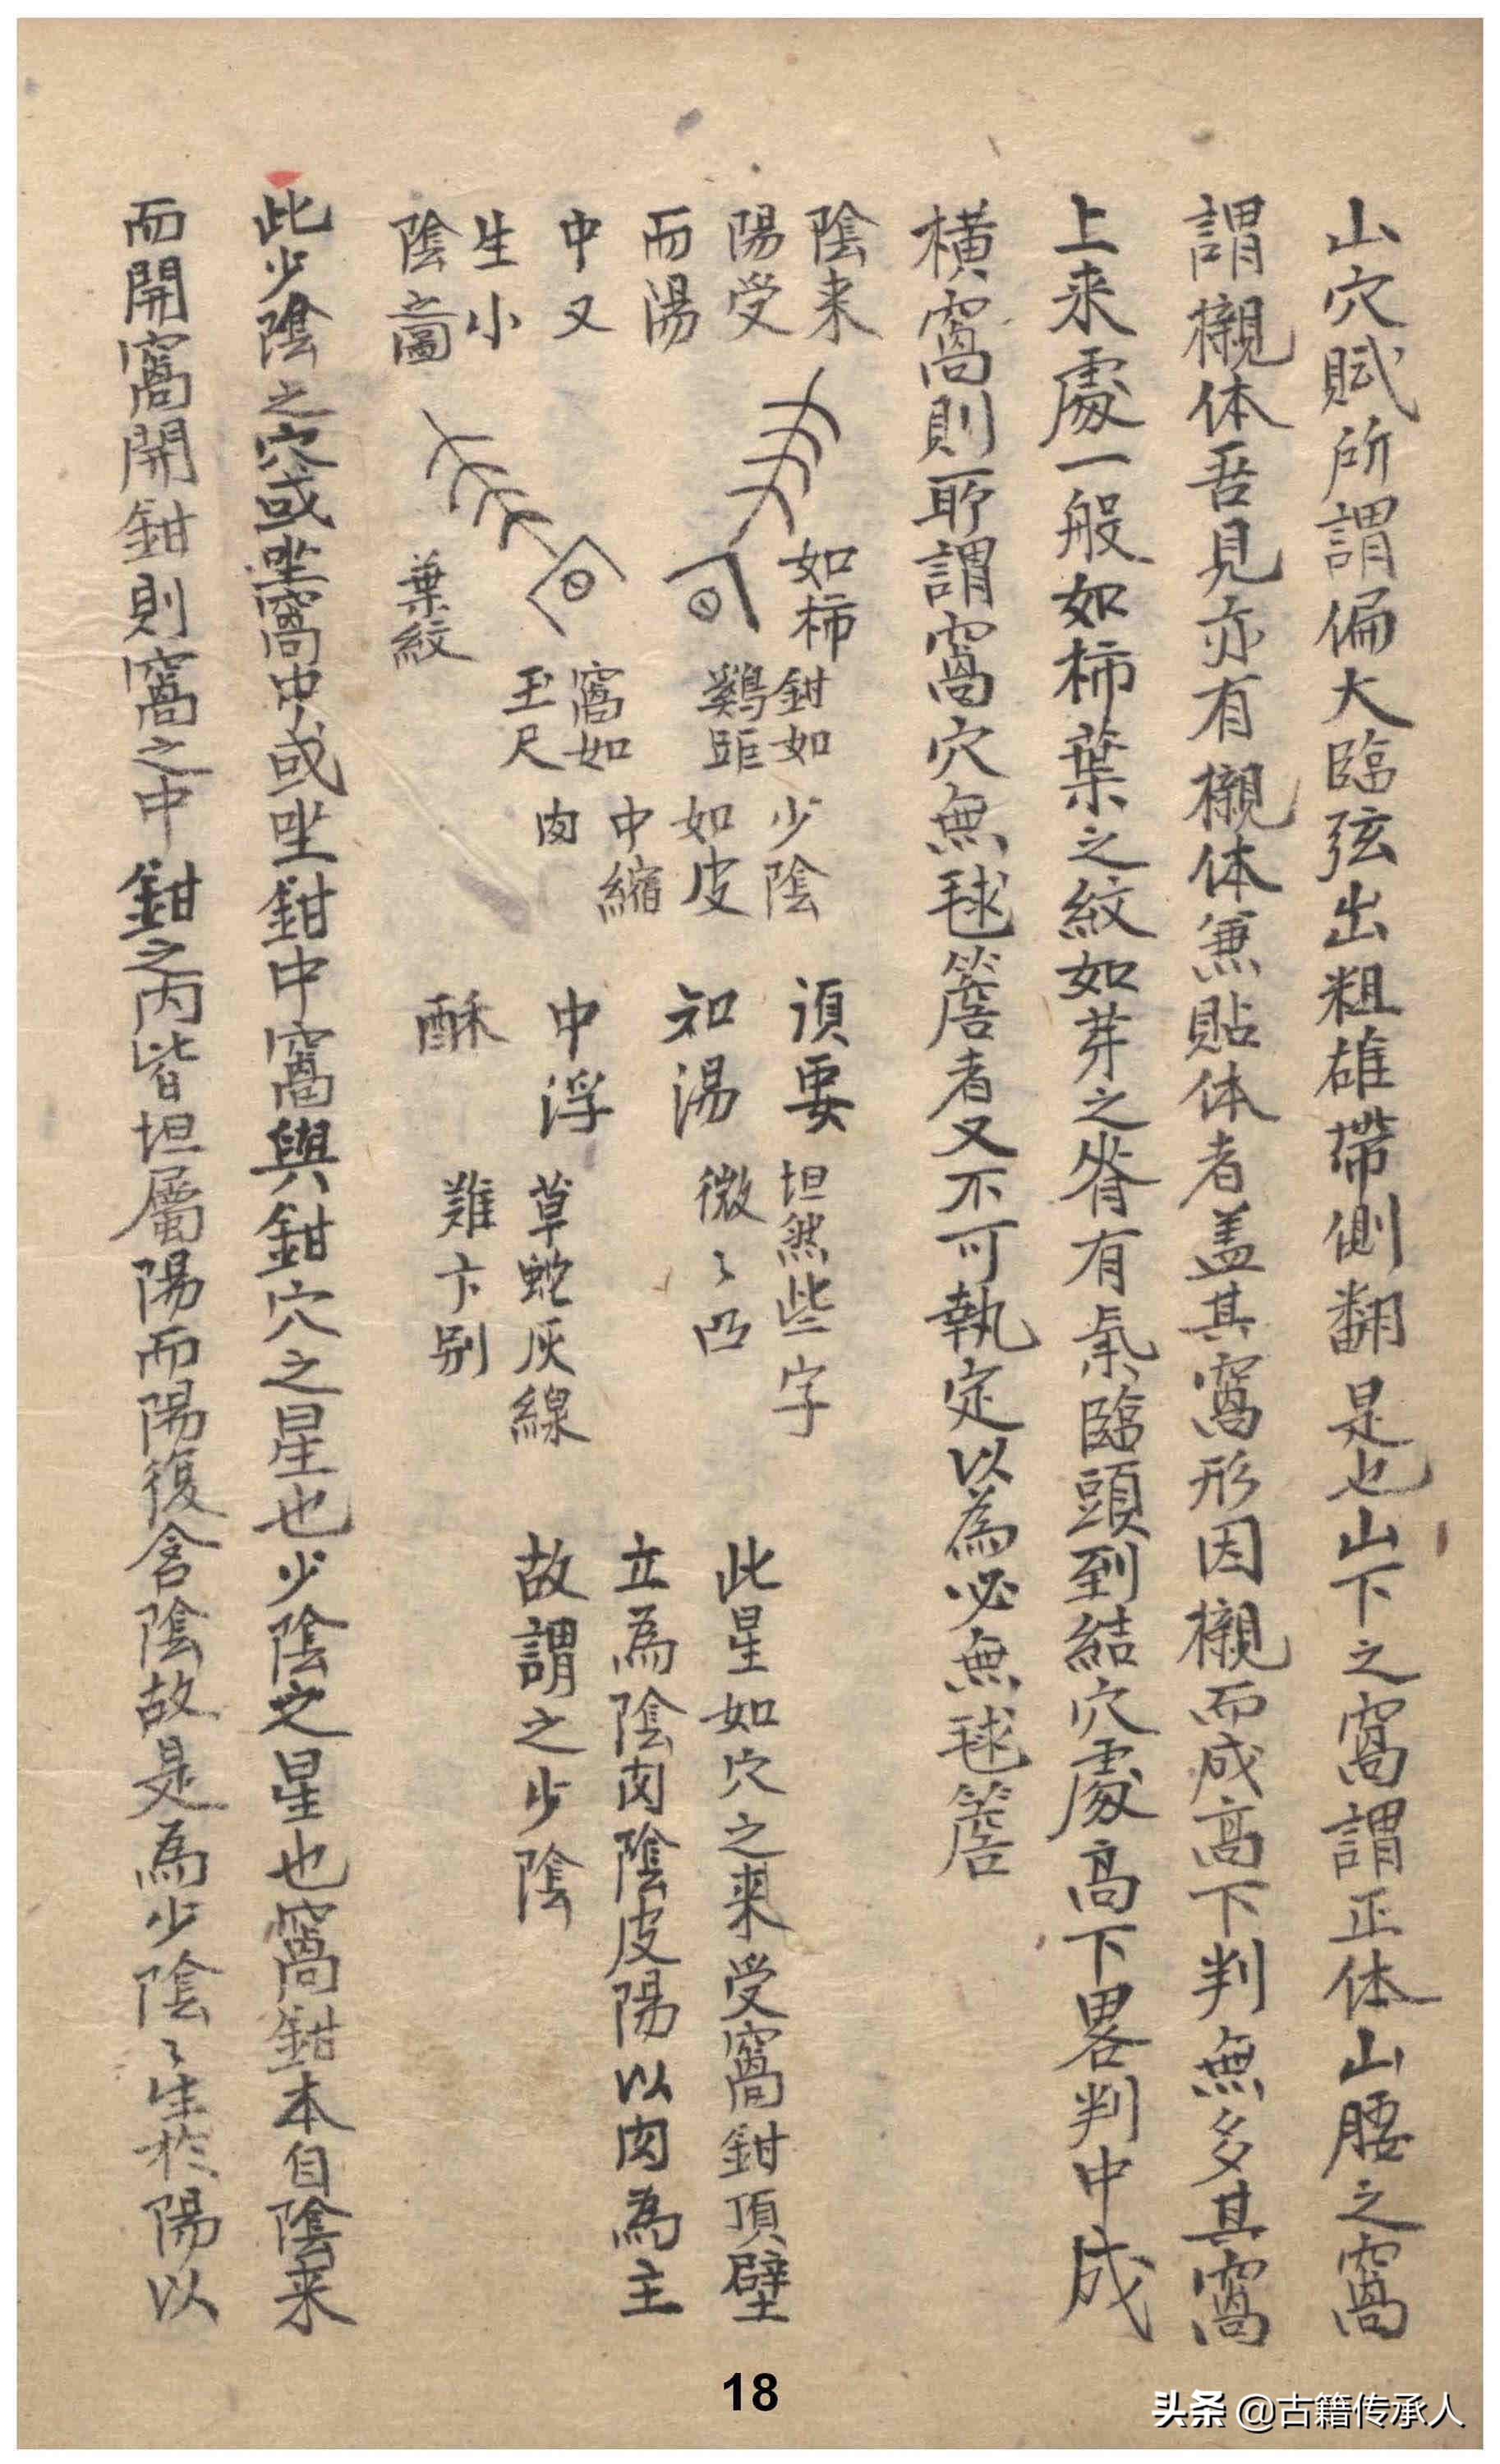 山穴賦所謂偏大臨弦出粗雄帶側翻是也山下之窩謂正体山腰之窩
謂櫬体吾見亦有櫬体兼貼体者盖其窩形因櫬而成高下判無多其窩
上来處一般如柿葉之紋如芽之脊有氣臨頭到結穴處高下畧判中成
橫窩則所謂窩穴無毬簷者又不可執定以為必無毬簷
陰来
陽受
而陽
中又
生小
陰啚
如柿
葉紋
鉗如
鷄距
窩如
玉尺
少陰
如皮
中縮
肉
須要
知湯
中浮
酥
坦然些字
微〻凸
草蛇灰線
難卞别
此星如穴之来受窩鉗頂壁
立為陰肉陰皮陽以肉為主
故謂之少陰
此少陰之穴或坐窩中或坐鉗中窩與鉗穴之星也少陰之星也窩鉗本自陰来
而開窩開鉗則窩之中鉗之内皆坦屬陽而陽復含陰故是為少陰〻生於陽以
18
头条 @古籍传承人